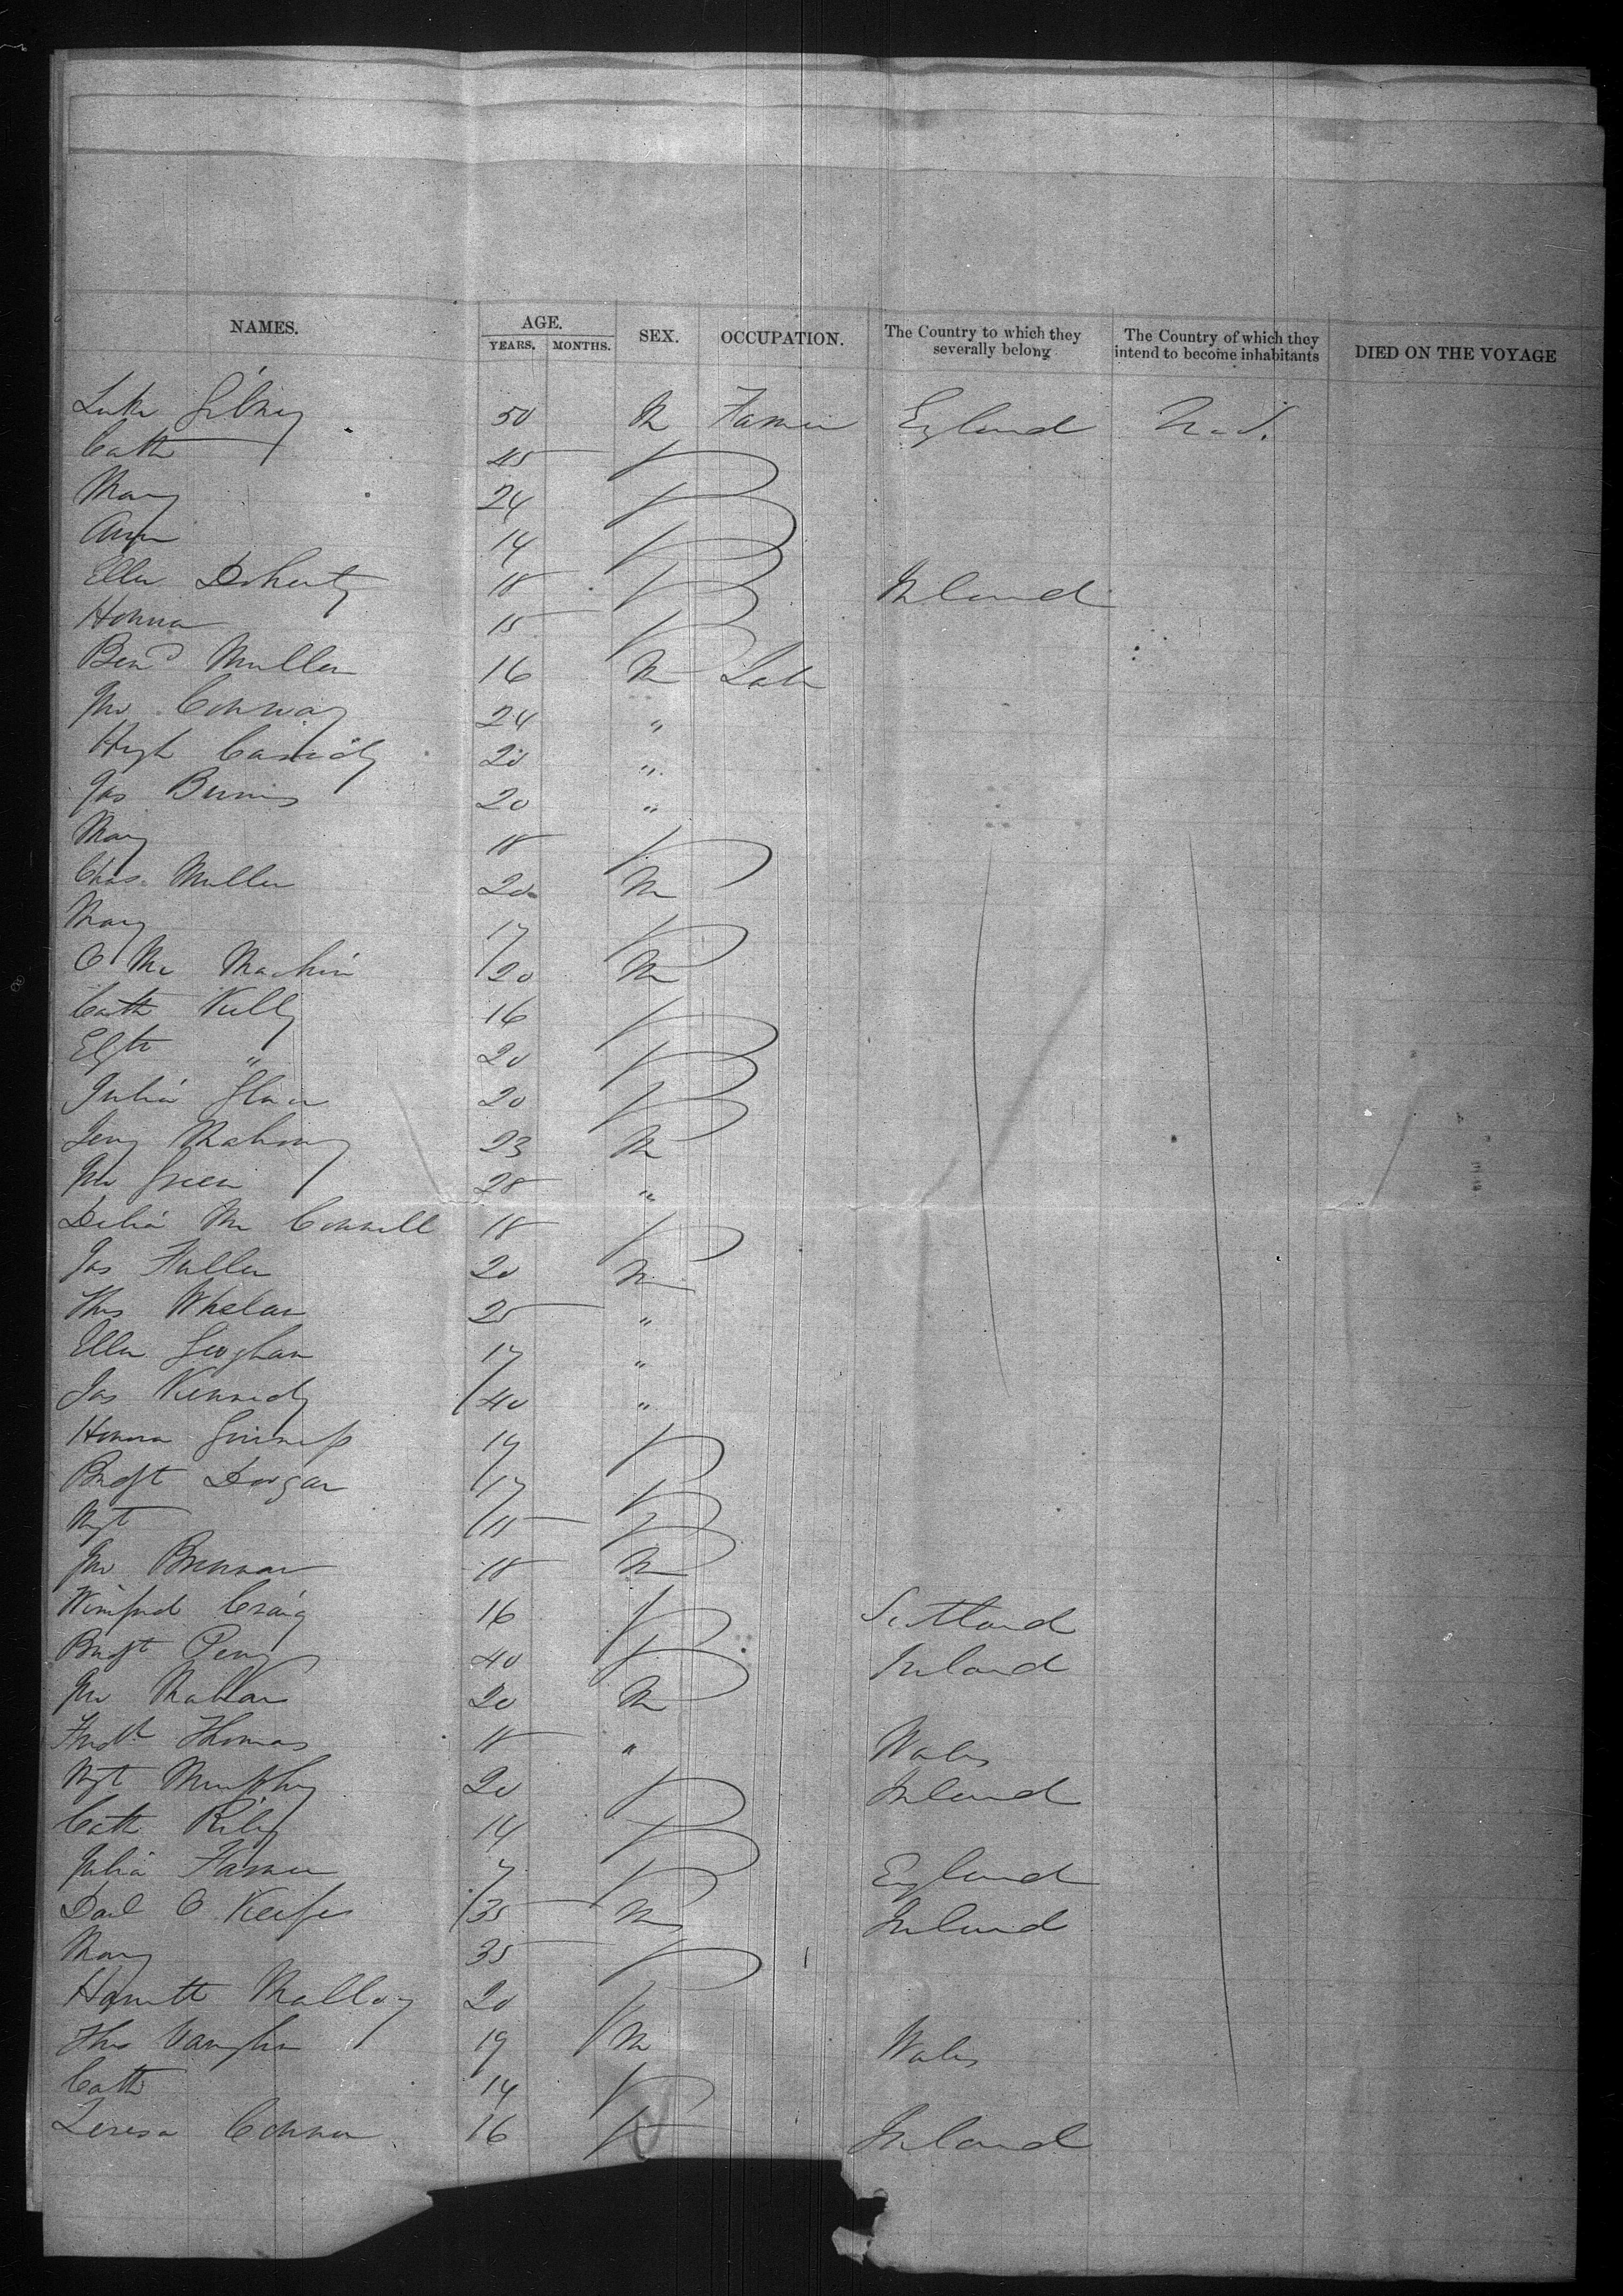 NAMES. AGE. SEX. OCCUPATION. The Country to which they severally belong The Country of which they intend to become inhabitants DIED ON THE VOYAGE
YEARS. MONTHS.
Luke Gibney 50 M Farmer England U.S.
Cath 45 F
Mary 24 F
Ann 14 F
Ellen Doherty 18 F Ireland
Honna 15 F
Bend Mullen 16 M Lab
Jno Conway 24 "
Hugh Cassidy 20 "
Jas Burns 20 "
Mary 18 F
Chas. Mullen 20 M
Mary 17 F
O Mc Mackin 20 M
Cath Kelly 16 F
Elizth " 20 F
Julia 20 F
Jerry Mahony 23 M
Jno Green 28 "
Delia Mc Connell 18 F
Jas Fallen 20 M
Thos Whelan 25 "
Ellen Geoghan 17 "
Jas Kennedy 40 "
Honna Guiness 17 F
Bridgt Doogan 17 F
Mgt 11 F
Jno Brennan 18 M
Winifred Craig 16 F Scotland
Bridgt Perry 40 F Ireland
Jno 20 M
Fredk Thomas 18 " Wales
Mgt Murphy 20 F Ireland
Cath Riley 14 F
Julia Farmer 7 F England
Danl O Keefe 35 M Ireland
Mary 35 F
Harriett Malloy 20 F
Thos Vaughn 19 M Wales
Cath 14 F
Teresa Connor 16 F Ireland